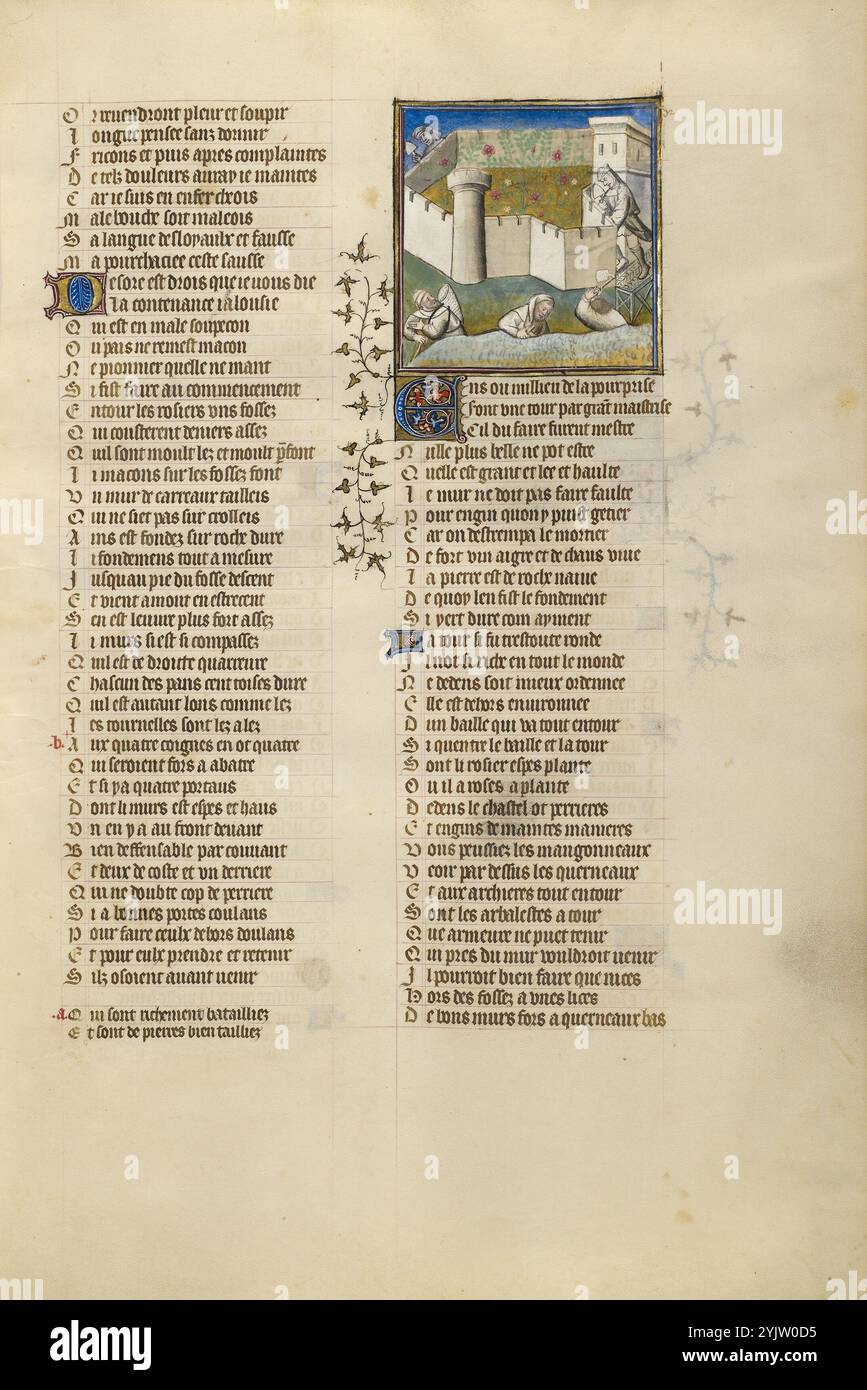 O r reuendront pleur et soupir
L ongue pensee sanz dormir
F ricons et puis apres complaintes
D e telz douleurs auray ie maintes
C ar ie suis en enfer cheois
M ale bouche soit maleois
S a langue desloyaulx et fausse
M a pourchaciee ceste sausse
D esore est drois que ie vous die
L a contenance ialousie
Q ui est en male soupecon
O u pais ne remest macon
N e pionnier quelle ne mant
S i fist faire au commencement
E ntour les rosiers vns fossez
Q ui cousterent deniers assez
Q uil sont moult lez et moult p̄font
L i macons sur les fossez font
V n mur de carreaux tailleis
Q ui ne siet pas sur crolleis
A ins est fondez sur roche dure
L i fondemens tout a mesure
J usquau pie du fosse descent
E t vient amont en estrecent
S en est leuure plus fort assez
L i murs si est si compassez
Q uil est de droite quarreure
C hascun des pans cent toises dure
Q uil est autant lons comme lez
L es tournelles sont lez a lez
.b. A ux quatre coignes en ot quatre
Q ui seroient fors a abatre
E t si y a quatre portaus
D ont li murs est espes et haus
V n en y a au front deuant
B ien deffensable par couuant
E t deux de coste et vn derriere
Q ui ne doubte cop de perriere
S i a bonnes portes coulans
P our faire ceulx dehors doulans
E t pour eulx prendre et retenir
S ilz osoient auant uenir
.a. Q ui sont richement batailliez
E t sont de pierres bien tailliez
E ns ou millieu de la pourprise
F ont vne tour par grāt maistrise
C il du faire furent mestre
N ulle plus belle ne pot estre
Q uelle est grant et lee et haulte
L e mur ne doit pas faire faulte
P our engin quon y puist getier
C ar on destrempa le mortier
D e fort vin aigre et de chaus viue
L a pierre est de roche naiue
D e quoy len fist le fondement
S i yert dure com ayment
L a tour si fu trestoute ronde
J l not si riche en tout le monde
N e dedens soit mieux ordennee
E lle est dehors enuironnee
D un baille qui va tout entour
S i quentre le baille et la tour
S ont li rosier espes plante
O u il a roses a plante
D edens le chastel ot perrieres
E t engins de maintes manieres
V ous peussiez les mangonneaux
V eoir par dessus les querneaux
E t aux archieres tout entour
S ont les arbalestes a tour
Q ue armeure ne puet tenir
Q ui pres du mur vouldroit uenir
J l pourroit bien faire que nices
H ors des fossez a vnes lices
D e bons murs fors a querneaux bas
alamy
Image ID: 2YJW0D5
www.alamy.com